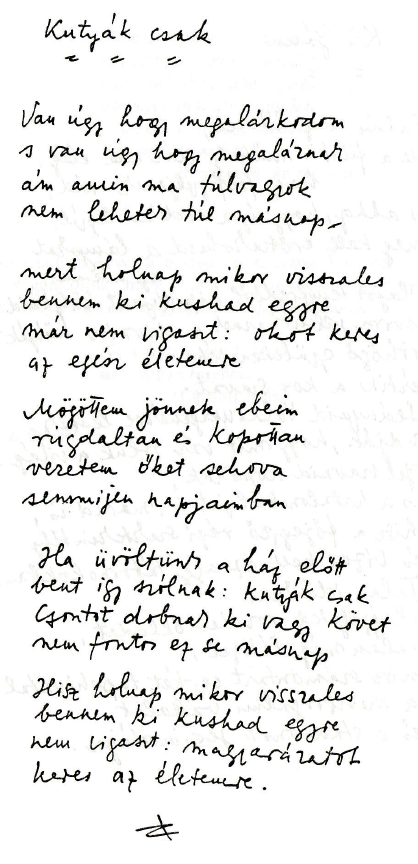 Kutyák csak
Van úgy hogy megalázkodom
s van úgy hogy megaláznak
ám amin ma túlvagyok
nem lehetek túl másnap
mert holnap mikor visszales
bennem ki kushad egyre
már nem vigaszt: okot keres
az egész életemre
Mögöttem jönnek ebeim
rugdaltan és kopottan
vezetem őket sehova
semmijen napjaimban
Ha üvöltünk a ház előtt
bent így szólnak: kutyák csak
Csontot dobnak ki vagy követ
nem fontos ez se másnap
Hisz holnap mikor visszales
bennem ki kushad egyre
nem vigaszt: magyarázatot
keres az életemre.